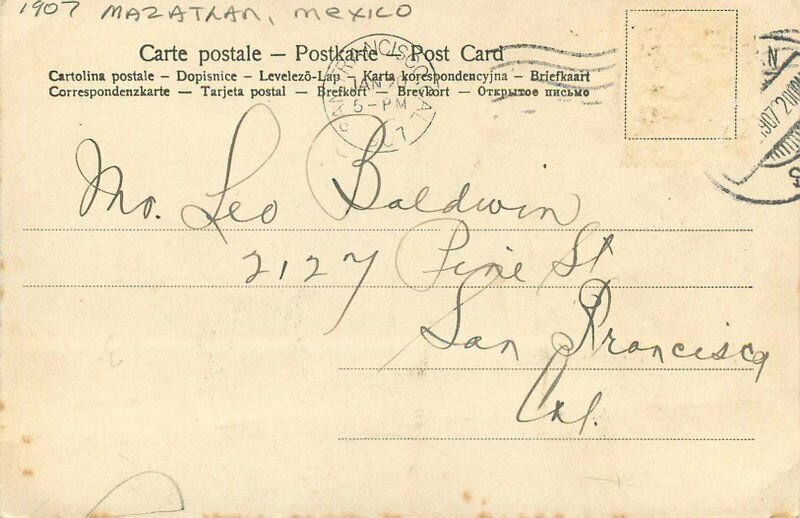 1907 MAZATLAN, MEXICO
Carte postale – Postkarte – Post Card
Cartolina postale – Dopisnice – Levelező-Lap – Karta korespondencyjna – Briefkaart
Correspondenzkarte – Tarjeta postal – Brefkort – Brevkort – Открытое письмо
SAN FRANCISCO, CAL.
JAN
5-PM
1907
Mr. Leo Baldwin
2127 Pine St
San Francisco
Cal.